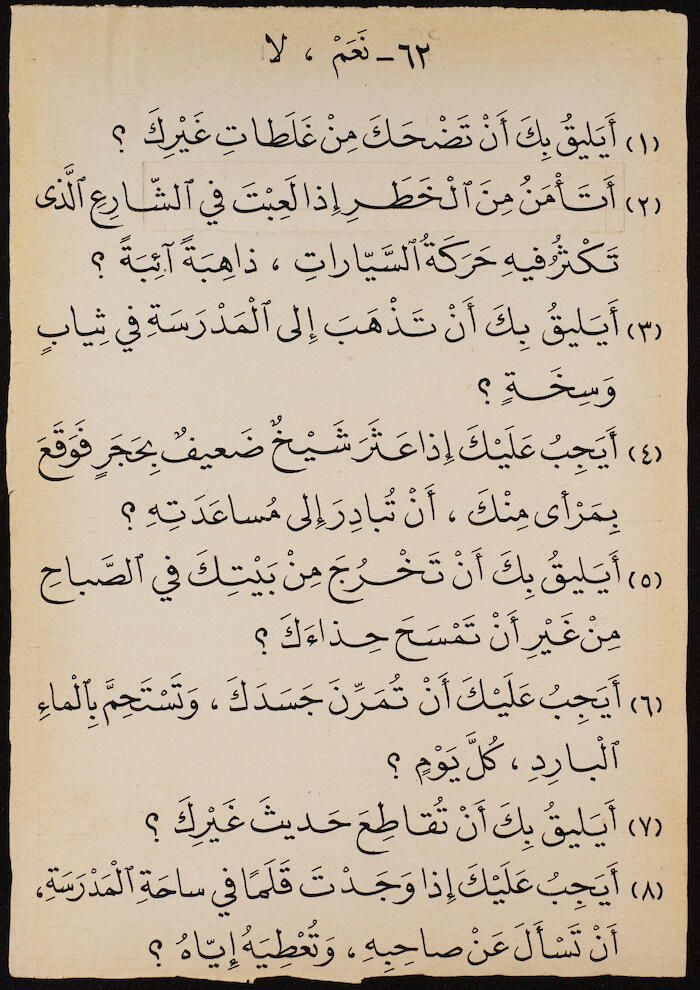 ٦٢- نَعَمْ ، لا
(١) أَيَليقُ بِكَ أَنْ تَضْحَكَ مِنْ غَلَطاتِ غَيْرِكَ ؟
(٢) أَتَأْمَنُ مِنَ ٱلْخَطَرِ إِذا لَعِبْتَ في ٱلشّارِعِ ٱلَّذى
تَكْثُرُ فيهِ حَرَكَةُ ٱلسَّيّاراتِ ، ذاهِبَةً آئِبَةً ؟
(٣) أَيَليقُ بِكَ أَنْ تَذْهَبَ إِلى ٱلْمَدْرَسَةِ في ثِيابٍ
وَسِخَةٍ ؟
(٤) أَيَجِبُ عَلَيْكَ إِذا عَثَرَ شَيْخٌ ضَعيفٌ بِحَجَرٍ فَوَقَعَ
بِمَرْأى مِنْكَ ، أَنْ تُبادِرَ إِلى مُساعَدَتِهِ ؟
(٥) أَيَليقُ بِكَ أَنْ تَخْرُجَ مِنْ بَيْتِكَ في ٱلصَّباحِ
مِنْ غَيْرِ أَنْ تَمْسَحَ حِذاءَكَ ؟
(٦) أَيَجِبُ عَلَيْكَ أَنْ تُمَرِّنَ جَسَدَكَ ، وَتَسْتَحِمَّ بِٱلْماءِ
ٱلْبارِدِ ، كُلَّ يَوْمٍ ؟
(٧) أَيَليقُ بِكَ أَنْ تُقاطِعَ حَديثَ غَيْرِكَ ؟
(٨) أَيَجِبُ عَلَيْكَ إِذا وَجَدْتَ قَلَمًا في ساحَةِ ٱلْمَدْرَسَةِ،
أَنْ تَسْأَلَ عَنْ صاحِبِهِ ، وَتُعْطِيَهُ إِيّاهُ ؟